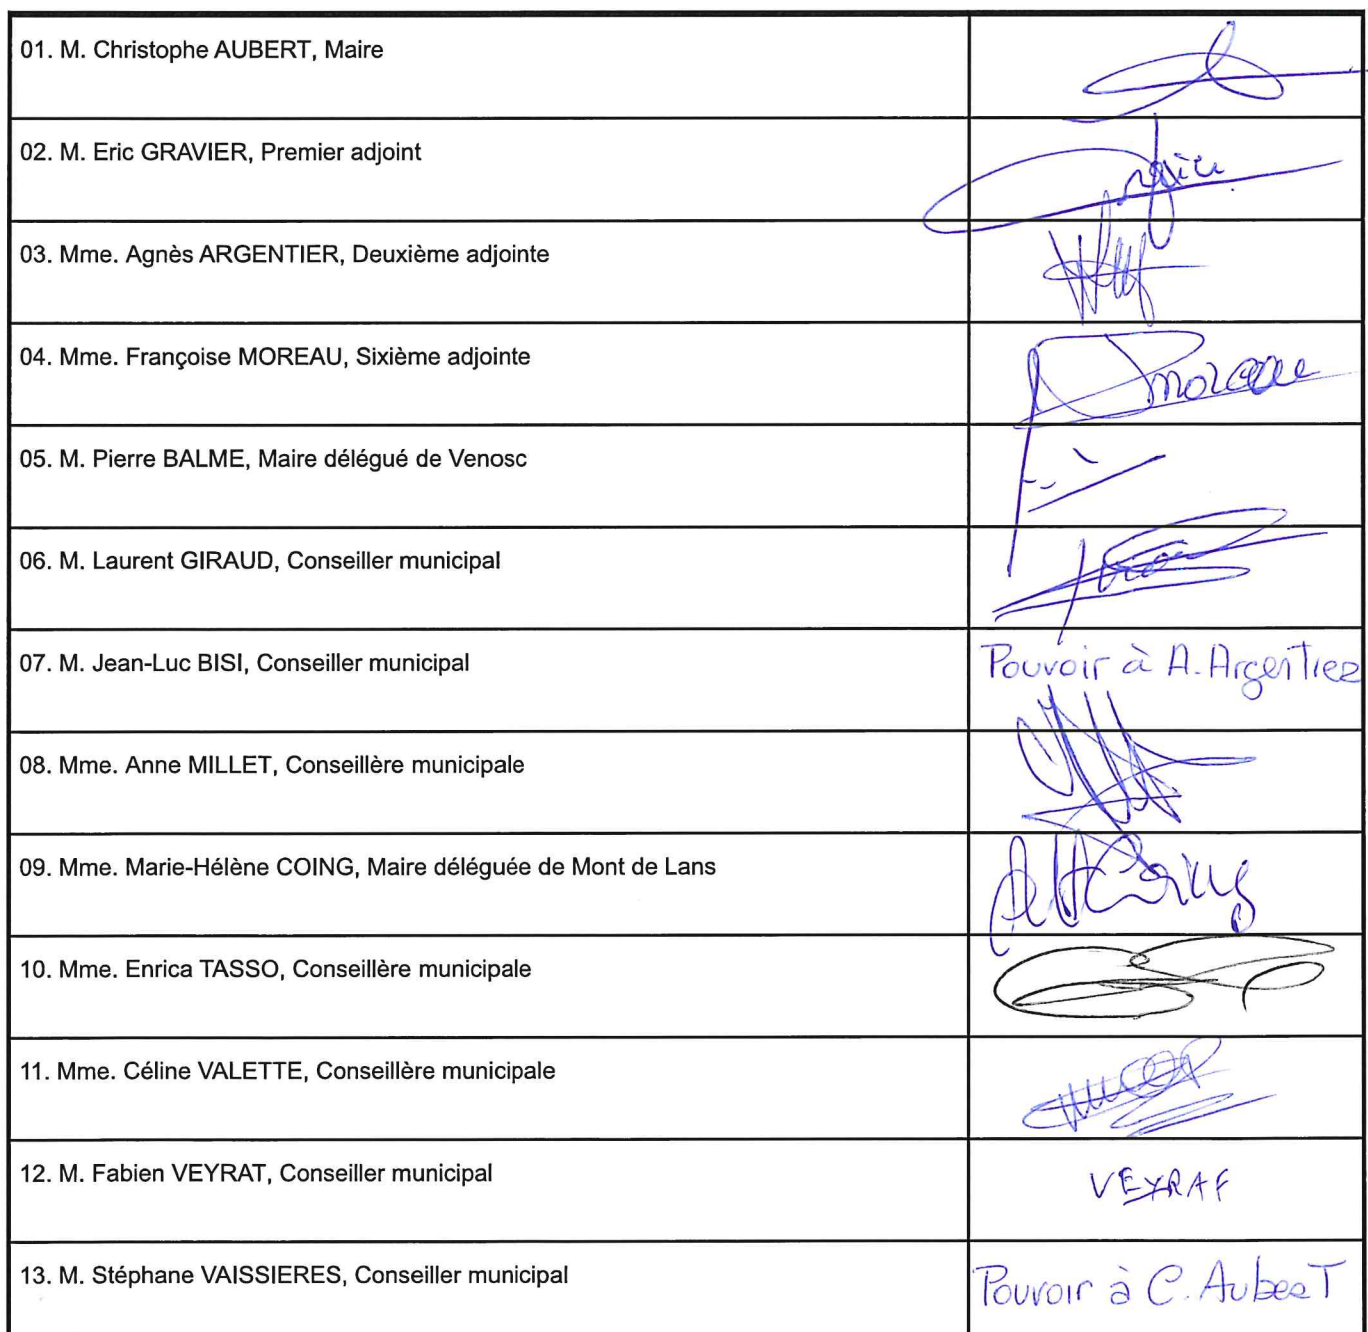 01. M. Christophe AUBERT, Maire
02. M. Eric GRAVIER, Premier adjoint
03. Mme. Agnès ARGENTIER, Deuxième adjointe
04. Mme. Françoise MOREAU, Sixième adjointe
moreau
05. M. Pierre BALME, Maire délégué de Venosc
06. M. Laurent GIRAUD, Conseiller municipal
07. M. Jean-Luc BISI, Conseiller municipal
Pouvoir à A. Argentier
08. Mme. Anne MILLET, Conseillère municipale
09. Mme. Marie-Hélène COING, Maire déléguée de Mont de Lans
MHCoing
10. Mme. Enrica TASSO, Conseillère municipale
11. Mme. Céline VALETTE, Conseillère municipale
12. M. Fabien VEYRAT, Conseiller municipal
VEYRAT
13. M. Stéphane VAISSIERES, Conseiller municipal
Pouvoir à C. AuberT